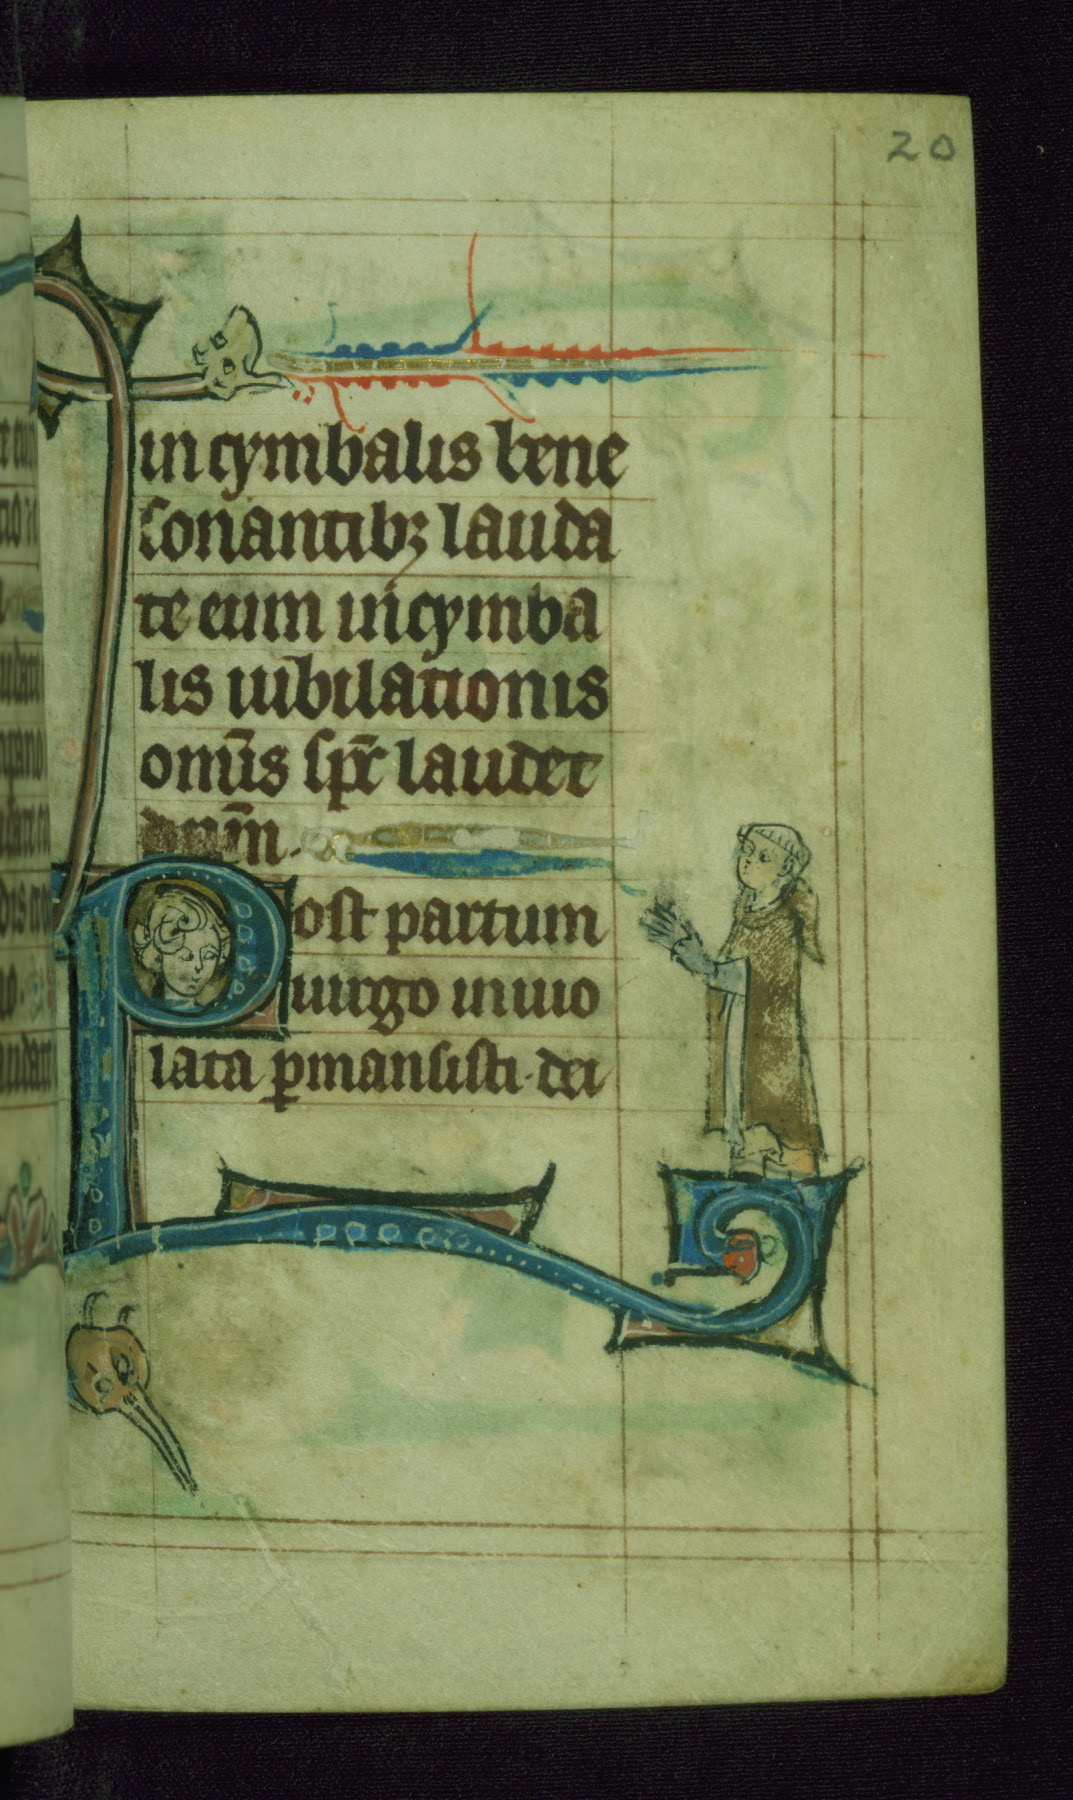 20
in cymbalis bene
sonantibꝫ lauda
te eum in cymba
lis iubilationis
omīs sp̄c laudet
dnm̄.
Post partum
uirgo inuio
lata ꝑmansisti· dei